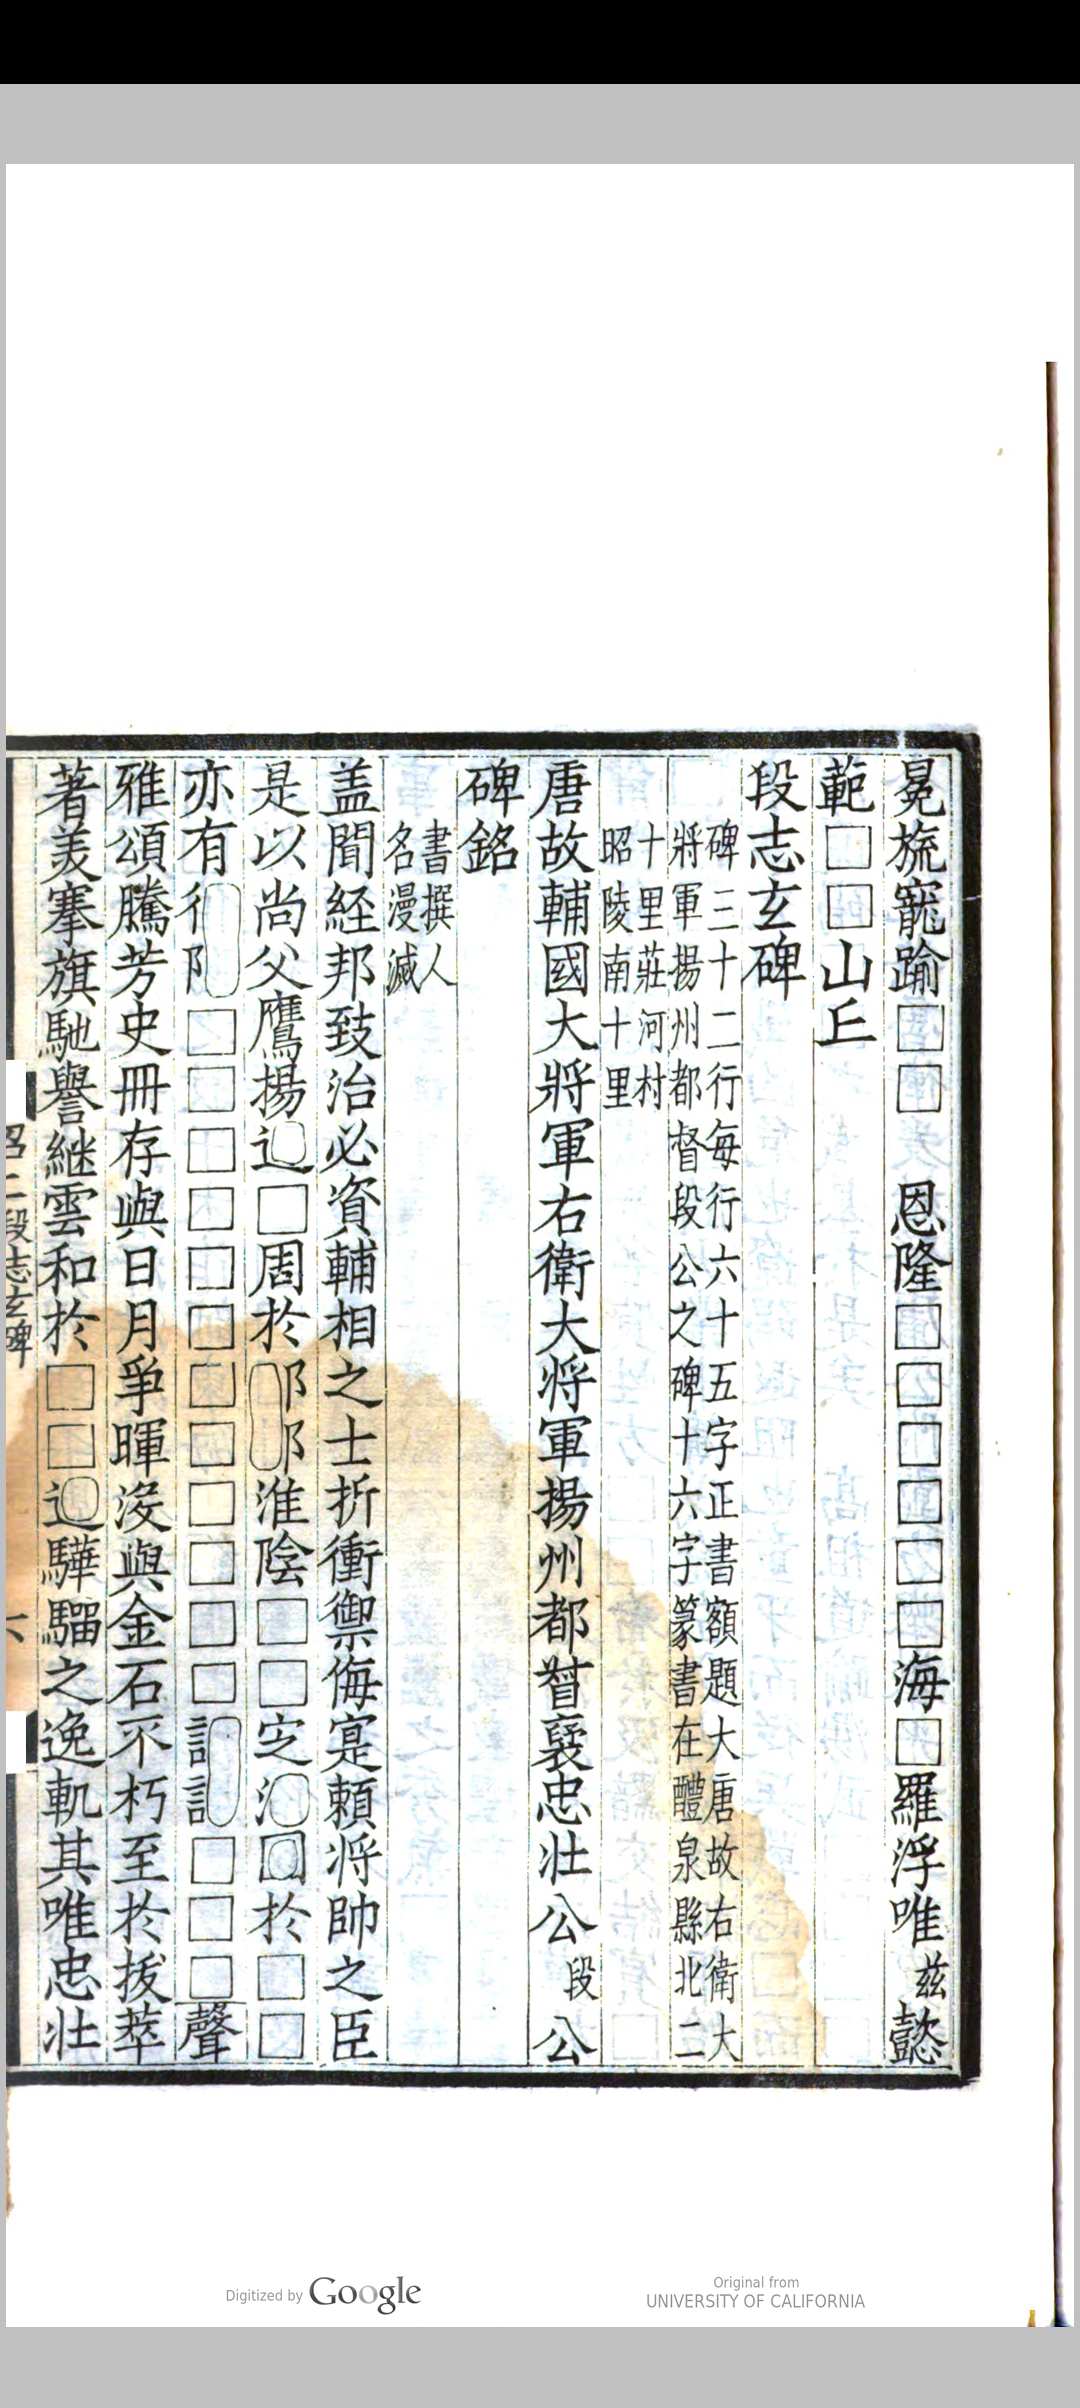 冕旒寵踰□□　恩隆□□□□□□海□羅浮唯茲懿
範□□山丘
段志玄碑
碑三十二行每行六十五字正書額題大唐故右衛大
將軍揚州都督段公之碑十六字篆書在醴泉縣北二
十里莊河村
昭陵南十里
唐故輔國大將軍右衛大將軍揚州都督襃忠壯公段公
碑銘
書撰人
名漫滅
盖聞経邦致治必資輔相之士折衝禦侮寔頼将帥之臣
是以尚父鷹揚辶□周於阝阝淮陰□□定氵□於□□
亦有彳阝□□□□□□□□□□□□言言□□□聲
雅頌騰芳史冊存與日月爭暉沒與金石不朽至於拔萃
著美搴旗馳譽継雲和於□□辶驊騮之逸軌其唯忠壯
昭二段志玄碑
六
Digitized by Google
Original from
UNIVERSITY OF CALIFORNIA